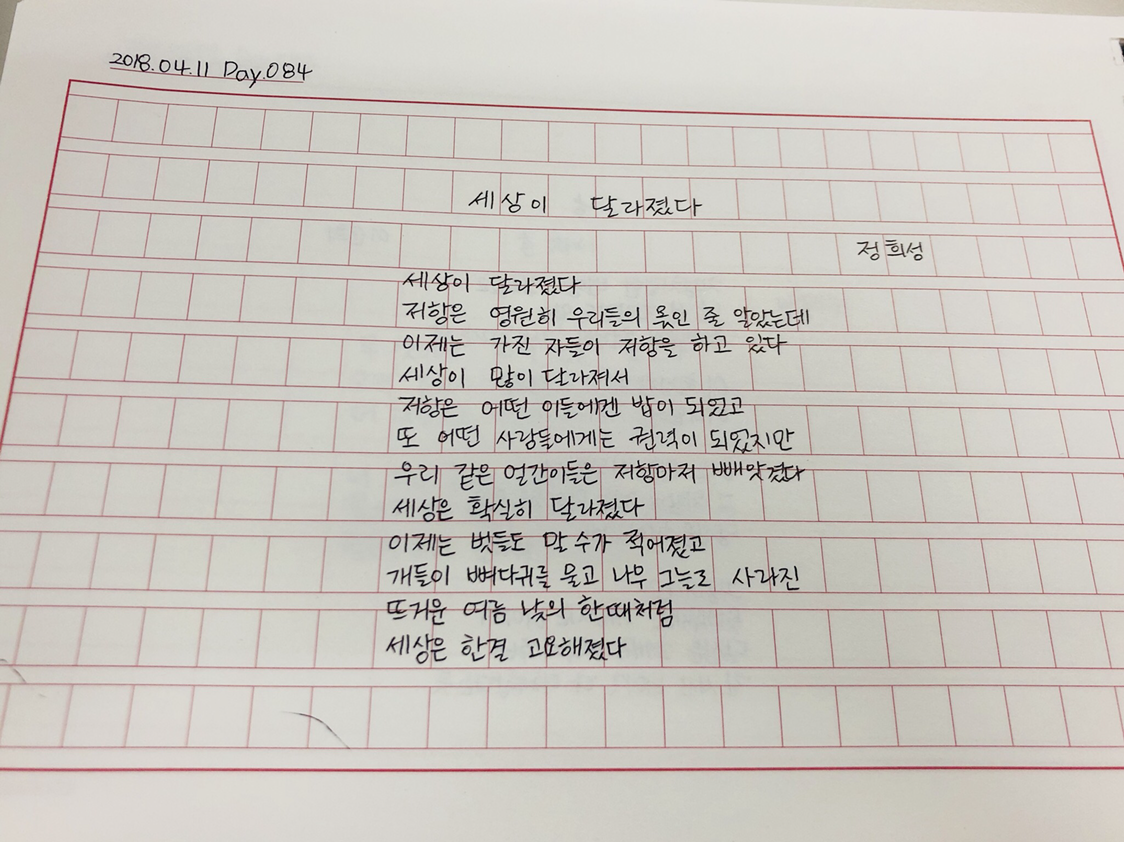 2018.04.11 Day.084
세상이 달라졌다
정희성
세상이 달라졌다
저항은 영원히 우리들의 몫인 줄 알았는데
이제는 가진 자들이 저항을 하고 있다
세상이 많이 달라져서
저항은 어떤 이들에겐 밥이 되었고
또 어떤 사람들에게는 권력이 되었지만
우리 같은 얼간이들은 저항마저 빼앗겼다
세상은 확실히 달라졌다
이제는 벗들도 말수가 적어졌고
개들이 뼈다귀를 물고 나무 그늘로 사라진
뜨거운 여름 낮의 한때처럼
세상은 한결 고요해졌다